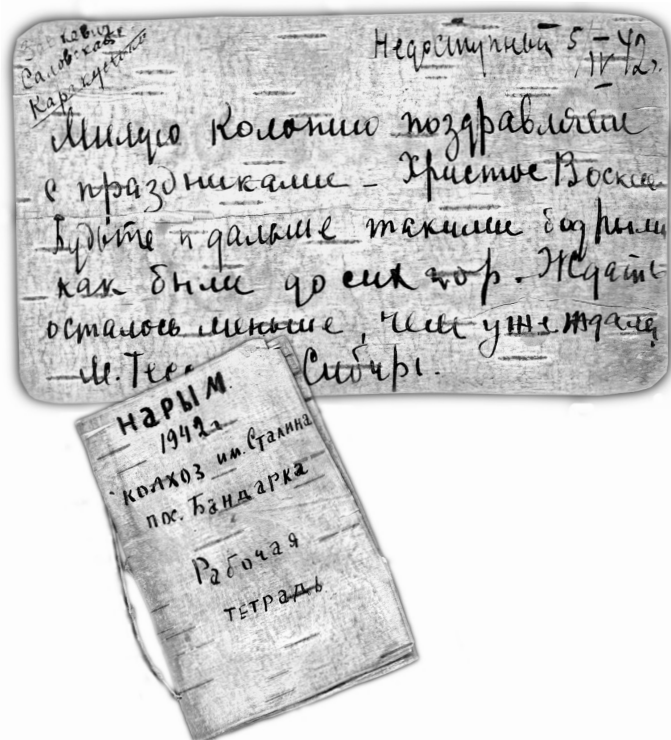 Саловская
Недоступный 5/IV 42 г.
Милую Колонию поздравляем
с праздниками - Христос Воскрес
Будьте и дальше такими бодрыми
как были до сих пор. Ждать
осталось меньше, чем уже ждали
М. Сибирь.
НАРЫМ.
1942 г
КОЛХОЗ им. Сталина
пос. Бандарка
Рабочая
тетрадь